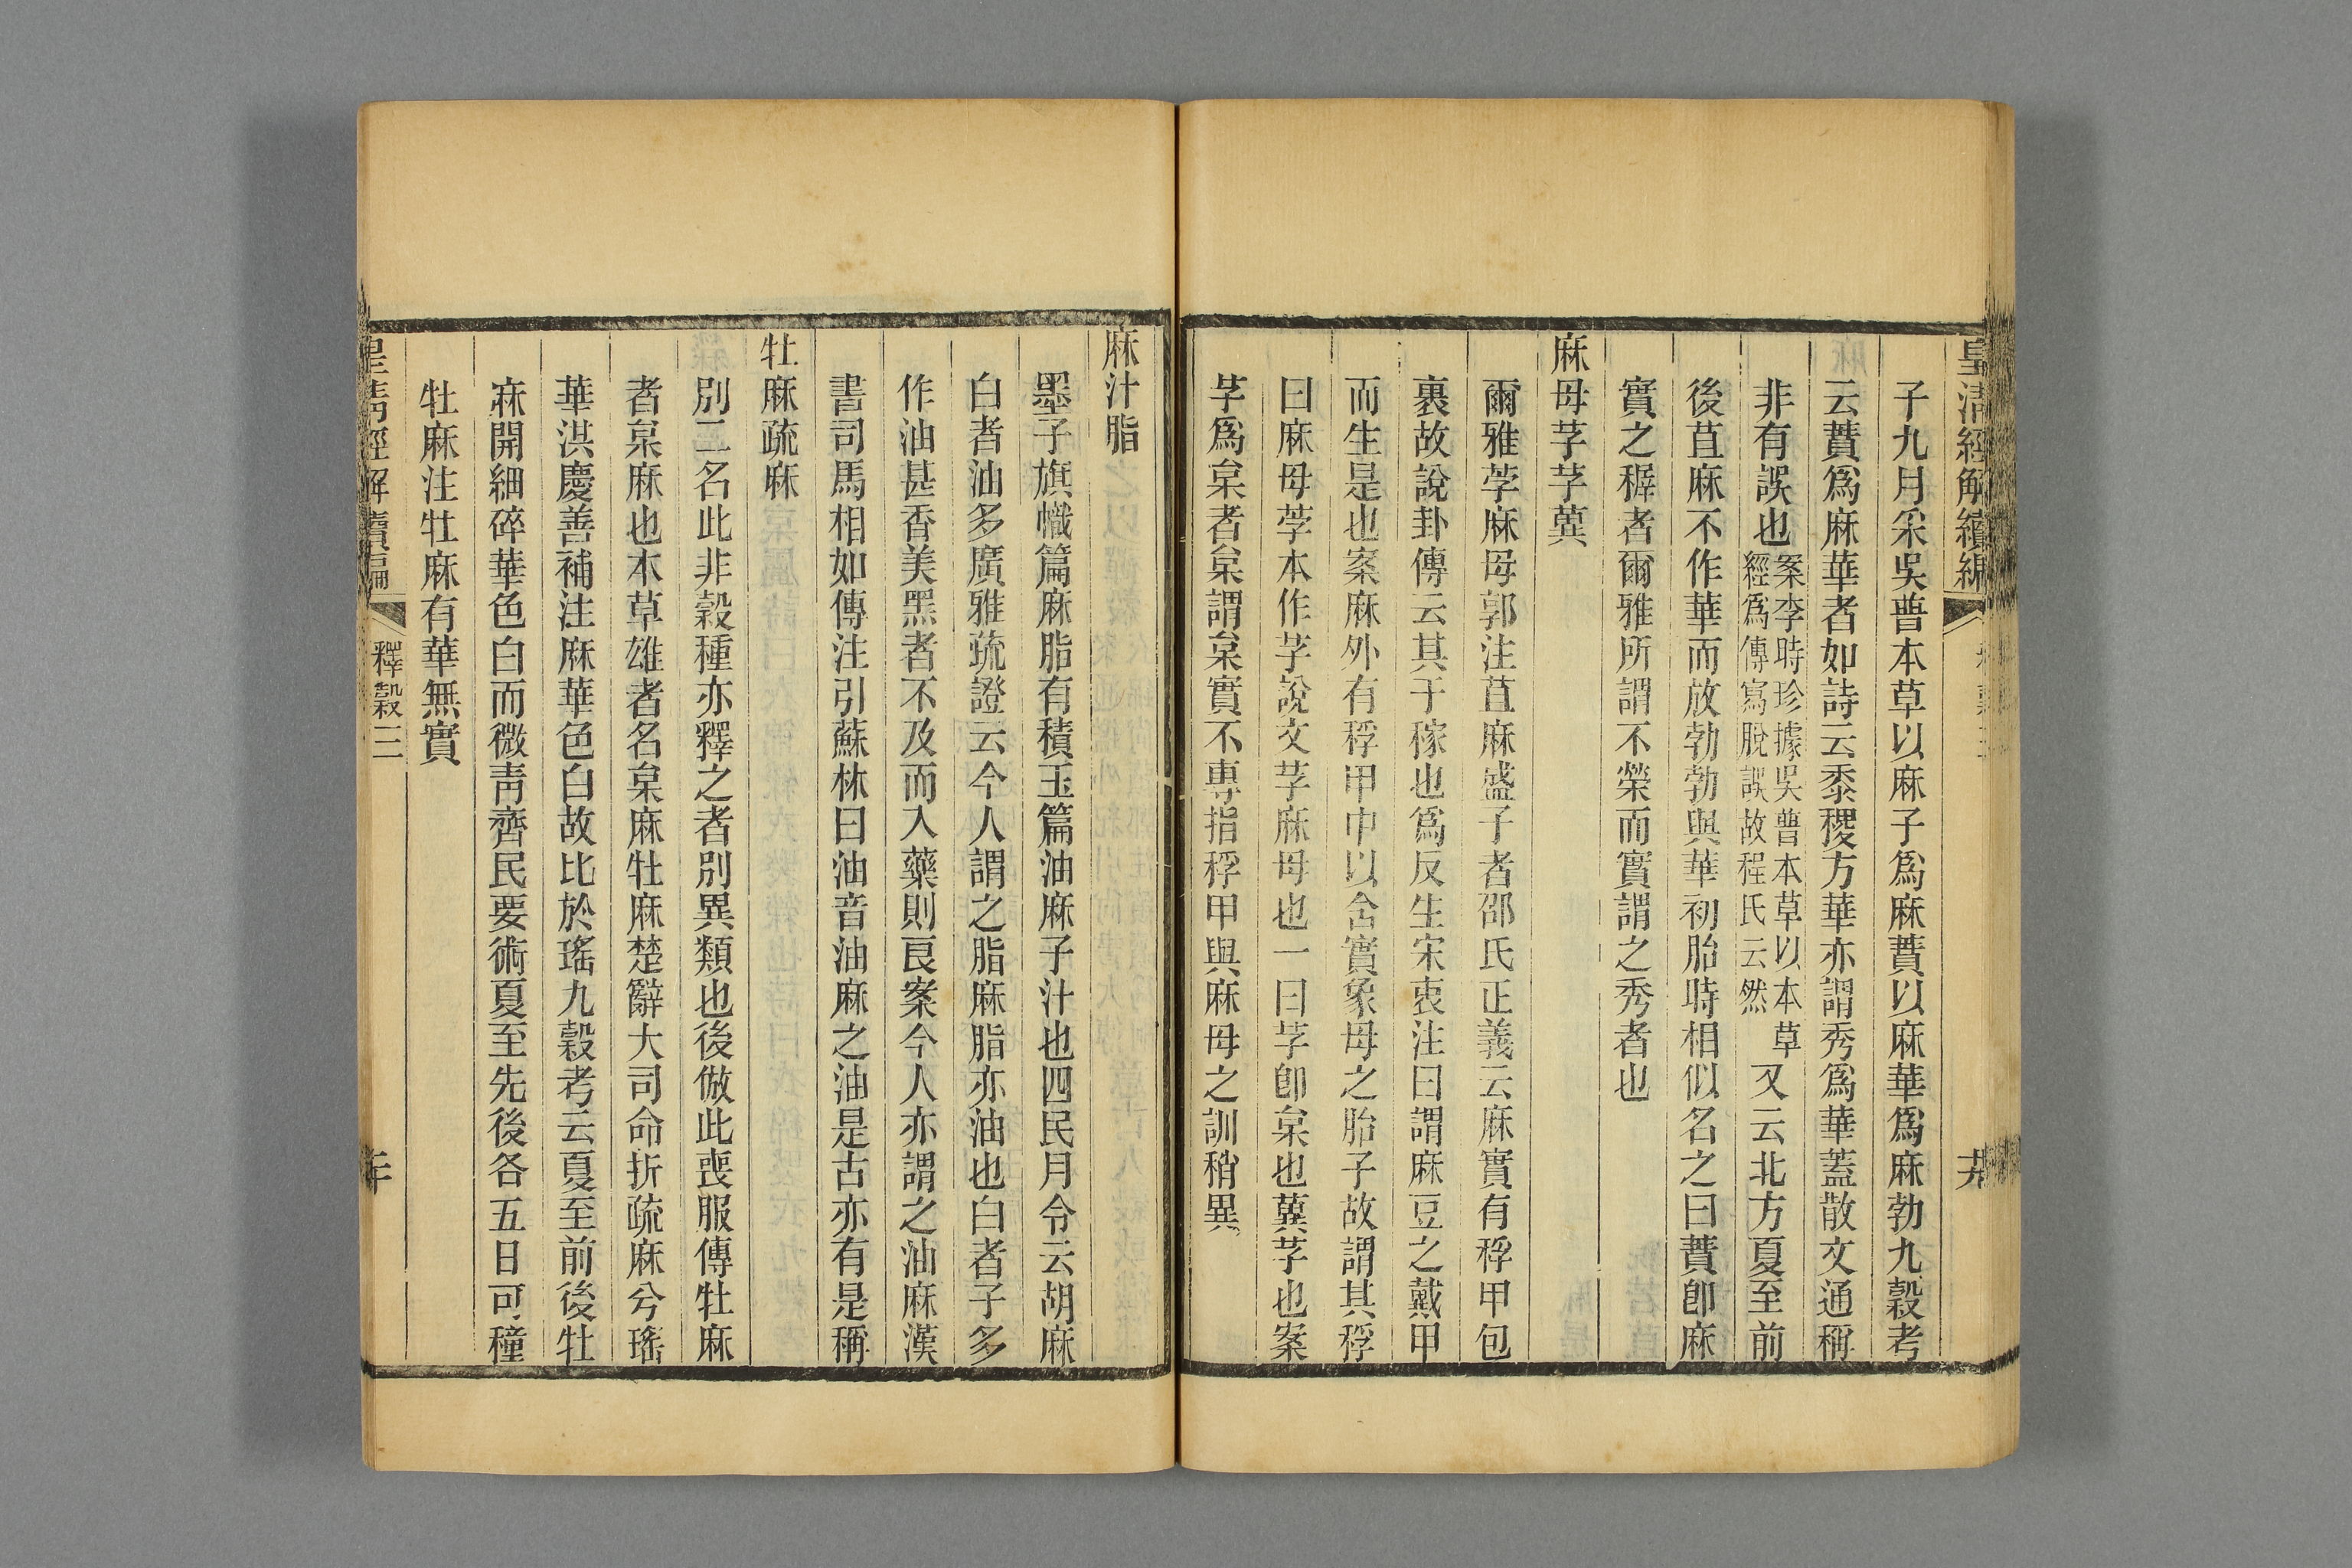 皇清經解續編
子九月采吳普本草以麻子爲麻蕡以麻華爲麻勃九穀考
云蕡爲麻華者如詩云黍稷方華亦謂秀爲華蓋散文通稱
非有誤也案李時珍據吳普本草以本草經爲傳寫脫誤故程氏云然又云北方夏至前
後苴麻不作華而放勃勃與華初胎時相似名之曰蕡卽麻
實之稺者爾雅所謂不榮而實謂之秀者也
麻母芓芓䔬
爾雅荸麻母郭注苴麻盛子者邵氏正義云麻實有稃甲包
裹故說卦傳云其于稼也爲反生宋衷注曰謂麻豆之戴甲
而生是也案麻外有稃甲中以含實象母之胎子故謂其稃
曰麻母荸本作芓說文芓麻母也一曰芓卽枲也䔬芓也案
芓爲枲者枲謂枲實不專指稃甲與麻母之訓稍異
麻汁脂
墨子旗幟篇麻脂有積玉篇油麻子汁也四民月令云胡麻
白者油多廣雅疏證云今人謂之脂麻脂亦油也白者子多
作油甚香美黑者不及而入藥則良案今人亦謂之油麻漢
書司馬相如傳注引蘇林曰油音油麻之油是古亦有是稱
牡麻疏麻
別二名此非穀種亦釋之者別異類也後倣此喪服傳牡麻
者枲麻也本草雄者名枲麻牡麻楚辭大司命折疏麻兮瑤
華洪慶善補注麻華色白故比於瑤九穀考云夏至前後牡
麻開細碎華色白而微靑齊民要術夏至先後各五日可穜
牡麻注牡麻有華無實
皇清經解續編
釋穀三